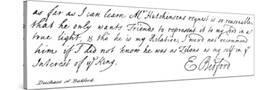 as far as I can learn Mr Hutchinsons request is so reasonable
that he only wants Friends to represent it to my Lord in a
true light, & as he is my Relation, I need not recommend
him if I did not know he was as Zealous as my self in ye
Interest of ye King.
E Bedford
Duchess of Bedford.